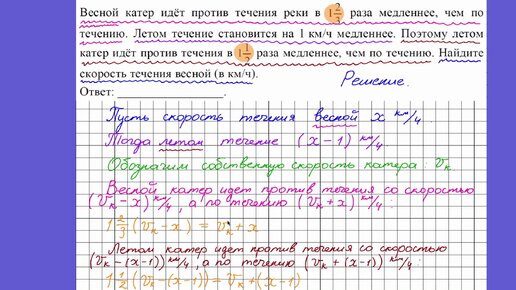 Весной катер идёт против течения реки в 1 2/3 раза медленнее, чем по
течению. Летом течение становится на 1 км/ч медленнее. Поэтому летом
катер идёт против течения в 1 1/2 раза медленнее, чем по течению. Найдите
скорость течения весной (в км/ч).
Ответ: ____________________.
Решение.
Пусть скорость течения весной x км/ч.
Тогда летом течение (x-1) км/ч.
Обозначим собственную скорость катера: vк.
Весной катер идет против течения со скоростью
(vк-x) км/ч, а по течению (vк+x) км/ч.
1 2/3 (vк-x) = vк+x
Летом катер идет против течения со скоростью
(vк-(x-1)) км/ч, а по течению (vк+(x-1)) км/ч.
1 1/2 (vк-(x-1)) = vк+(x-1)